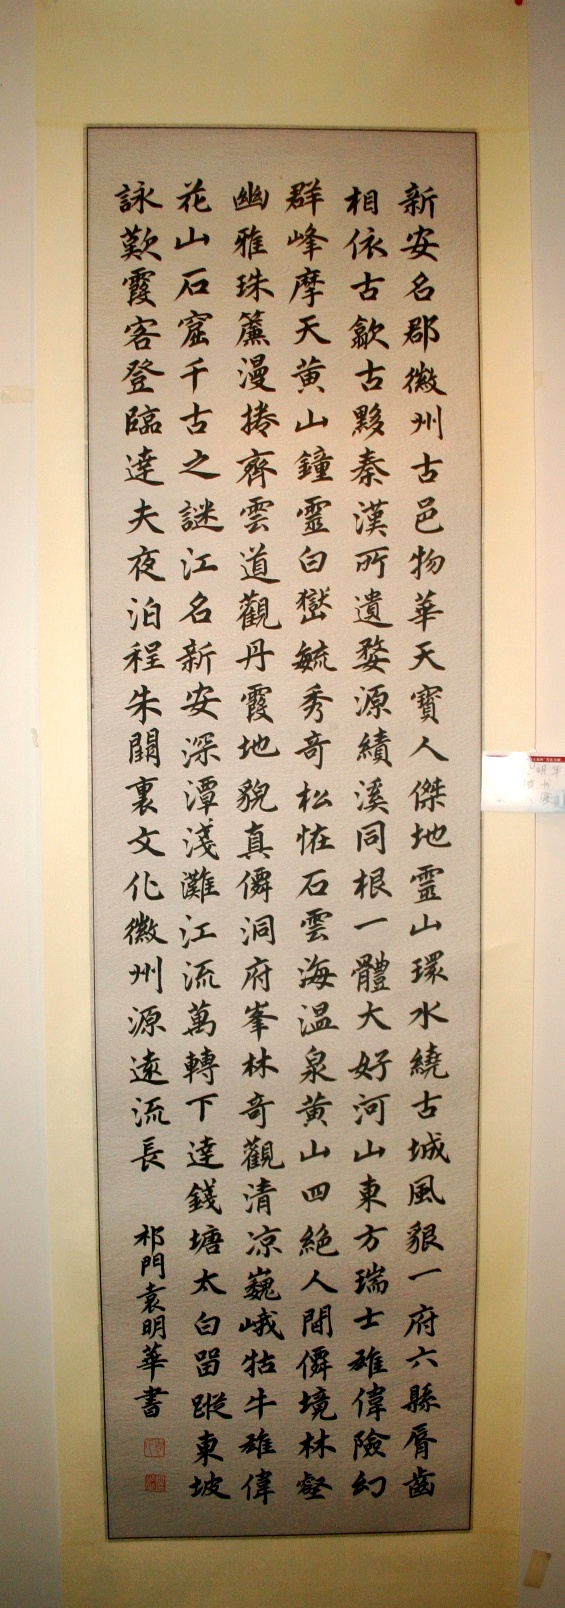 新安名郡徽州古邑物華天寶人傑地靈山環水繞古城風貌一府六縣脣齒
相依古歙古黟秦漢所遺婺源績溪同根一體大好河山東方瑞士雄偉險幻
群峰摩天黄山鐘靈白嶽毓秀奇松怪石雲海温泉黄山四絶人間僊境林壑
幽雅珠簾漫捲齊雲道觀丹霞地貌真僊洞府峯林奇觀清凉巍峨牯牛雄偉
花山石窟千古之謎江名新安深潭淺灘江流萬轉下達錢塘太白留蹤東坡
詠歎霞客登臨達夫夜泊程朱闕裏文化徽州源遠流長
祁門袁明華書